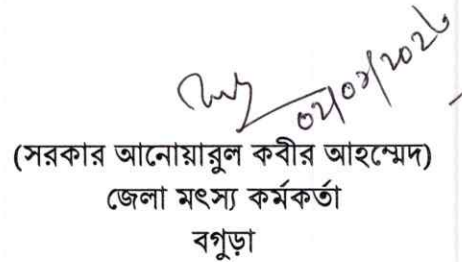 (সরকার আনোয়ারুল কবীর আহম্মেদ)
জেলা মৎস্য কর্মকর্তা
বগুড়া